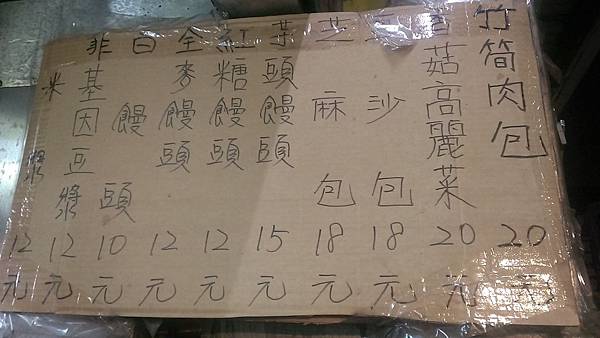 竹筍肉包20元
香菇高麗菜20元
豆沙包18元
芝麻包18元
芋頭饅頭15元
紅糖饅頭12元
全麥饅頭12元
白饅頭10元
非基因豆漿12元
米漿12元